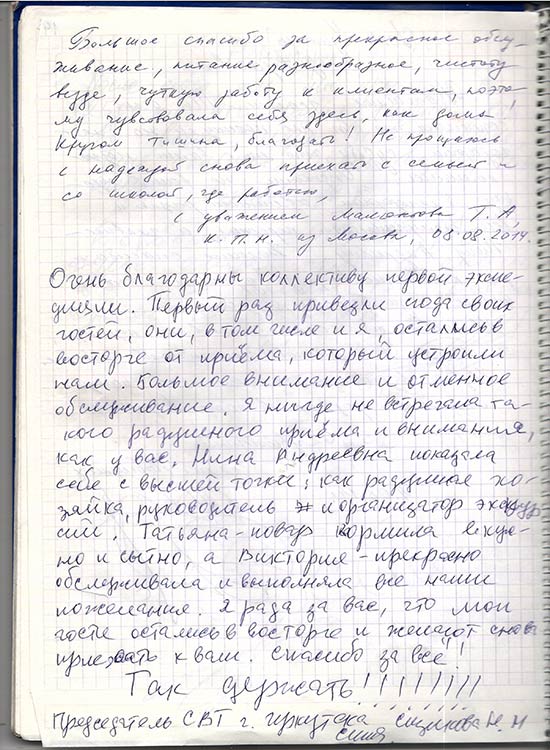 Большое спасибо за прекрасное обслу-
живание, питание разнообразное, чистоту
везде, чуткую работу к клиентам, поэто-
му чувствовала себя здесь, как дома!
Кругом тишина, благодать! Не прощаюсь
с надеждой снова приехать с семьей и
со школой, где работаю,
с уважением Т. А,
к. п. н. из Москва, 08.08.2014.
Очень благодарны коллективу первой экспе-
диции. Первый раз привезли сюда своих
гостей, они, в том числе и я, остались в
восторге от приёма, который устроили
нам. Большое внимание и отменное
обслуживание. Я нигде не встречала та-
кого радушного приёма и внимания,
как у вас. Нина Андреевна показала
себе с высшей точки: как радушное хо-
зяйка, руководитель и организатор экскур
сий. Татьяна-повар кормила вкус-
но и сытно, а Виктория-прекрасно
обслуживала и выполняла все наши
пожелания. Я рада за вас, что мои
гости остались в восторге и желают снова
приехать к вам. Спасибо за всё!!
Так держать!!!!!!!!!
Председатель СВТ г. Иркутска Н. Н